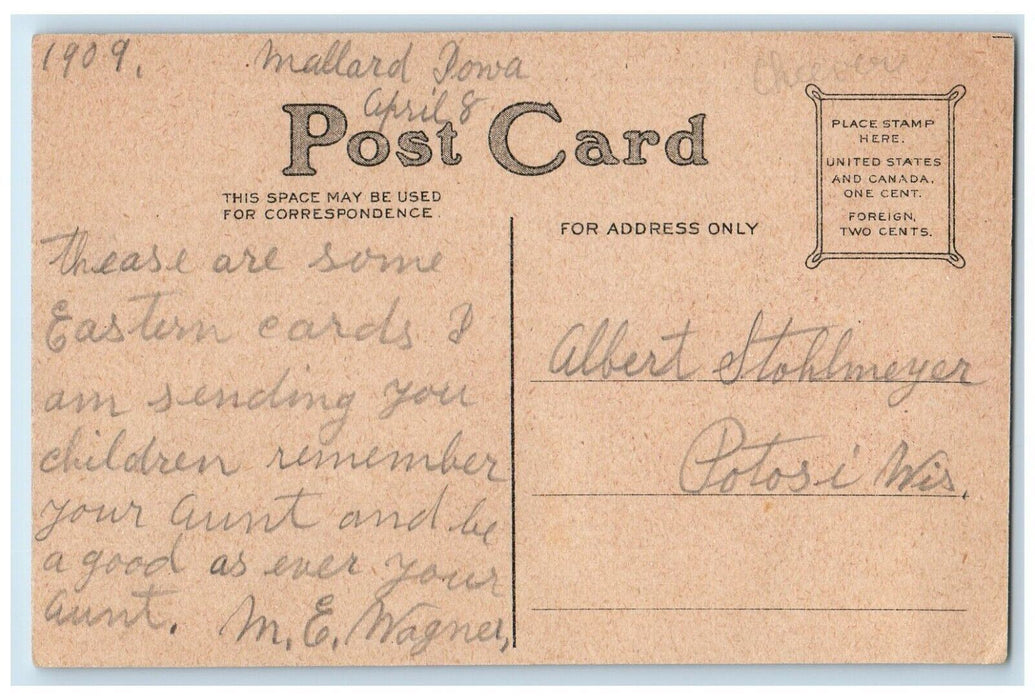 1909.
Mallard Iowa
April 8
Post Card
THIS SPACE MAY BE USED
FOR CORRESPONDENCE.
FOR ADDRESS ONLY
PLACE STAMP
HERE.
UNITED STATES
AND CANADA,
ONE CENT.
FOREIGN,
TWO CENTS.
thease are some
Eastern cards I
am sending you
children remember
your aunt and be
a good as ever your
aunt. M. E. Wagner,
Albert Stohlmeyer
Potosi Wis.